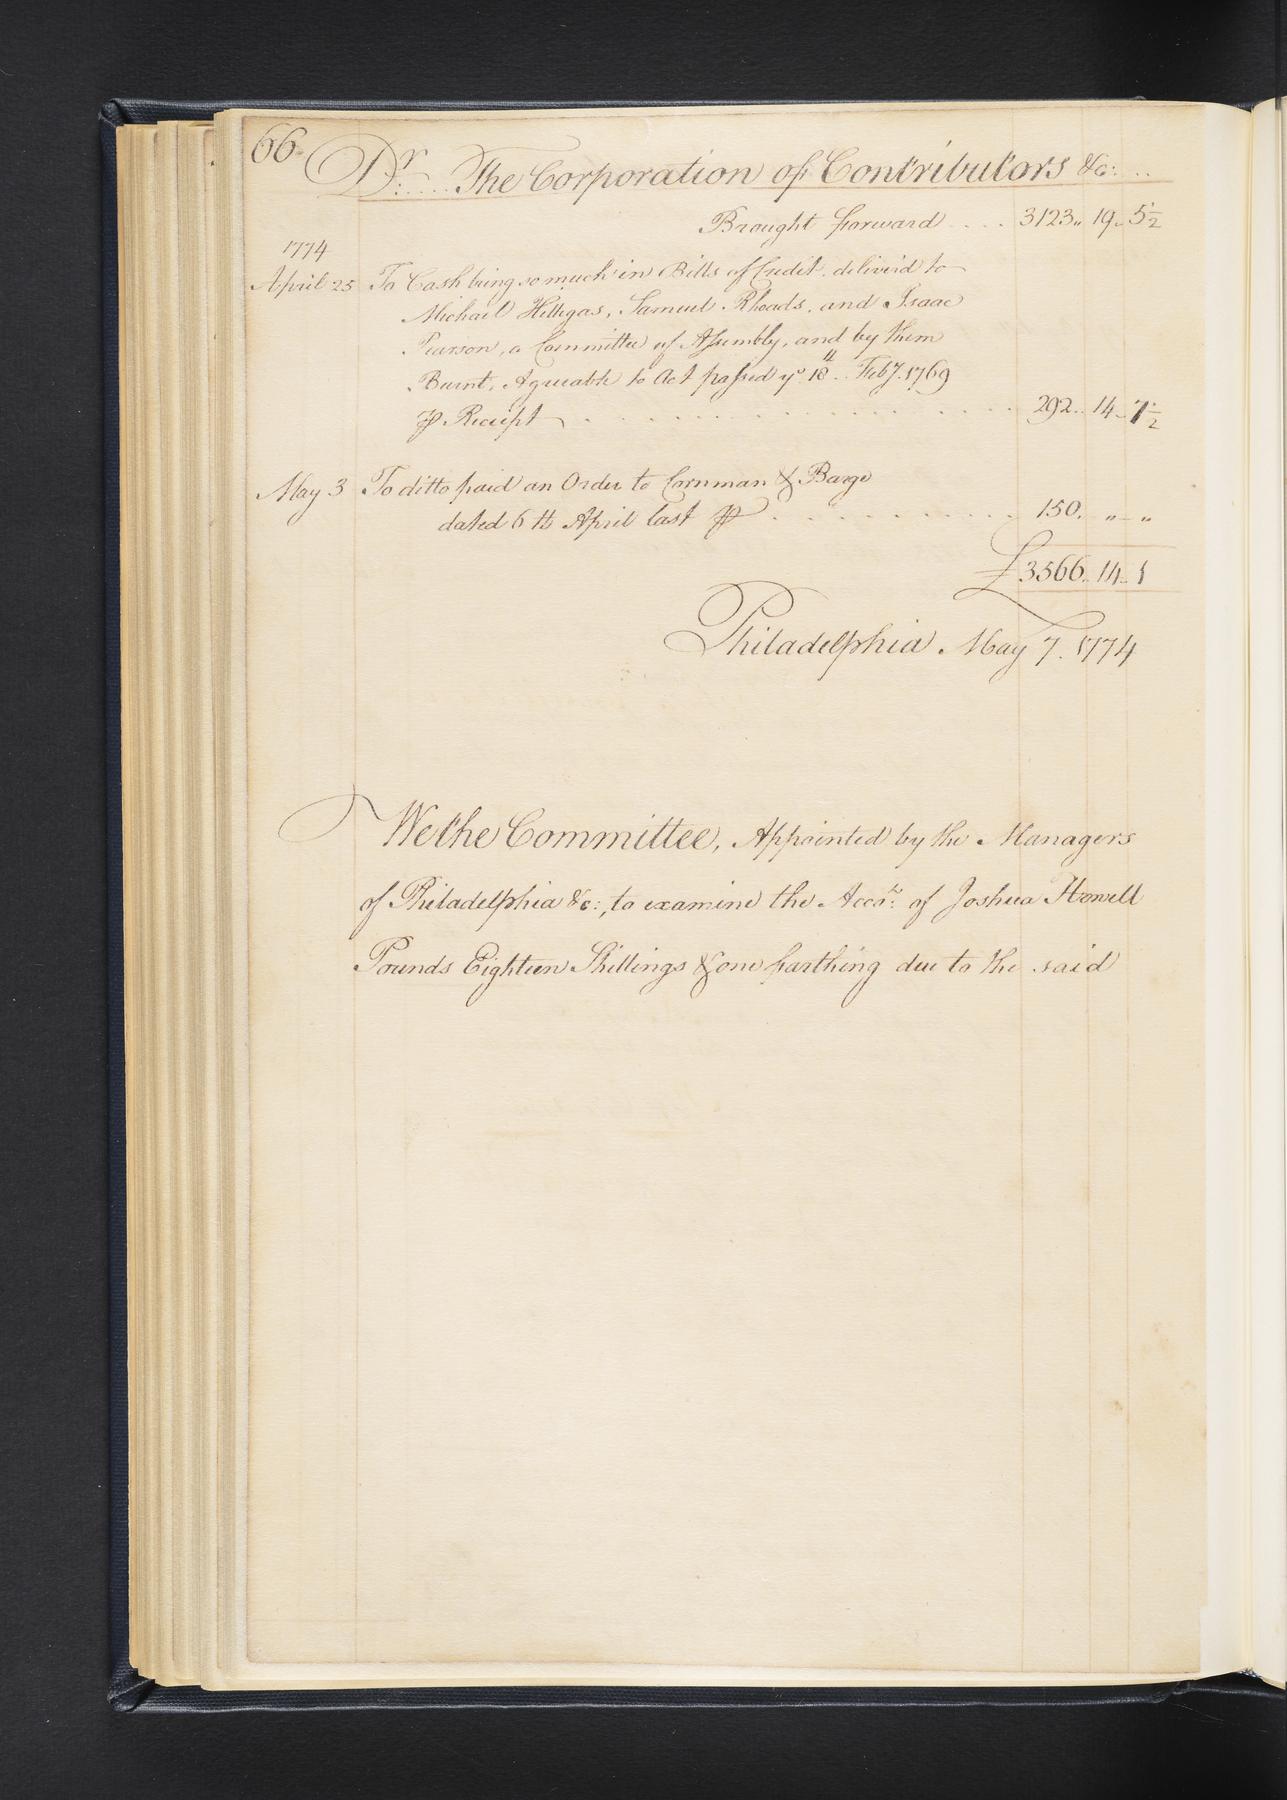 66
Dr: .... The Corporation of Contributors &c: ...
Brought forward .... 3123,, 19,, 5½
1774
April 25 To Cash being so much in Bills of Credit deliver'd to
Michael Hillegas, Samuel Rhoads, and Isaac
Pearson, a Committee of Assembly, and by them
Burnt, Agreeable to Act passed ye 18th Feby. 1769
⅌ Receipt . . . . . . . . . . . . 292.. 14.. 7½
May 3 To ditto paid an Order to Cornman & Barge
dated 6th April last ⅌ . . . . . . . . 150. ,, – ,,
£3566.. 14.. 1
Philadelphia May 7. 1774
We the Committee, Appointed by the Managers
of Philadelphia &c:, to examine the Accots: of Joshua Howell
Pounds Eighteen Shillings & one farthing due to the said